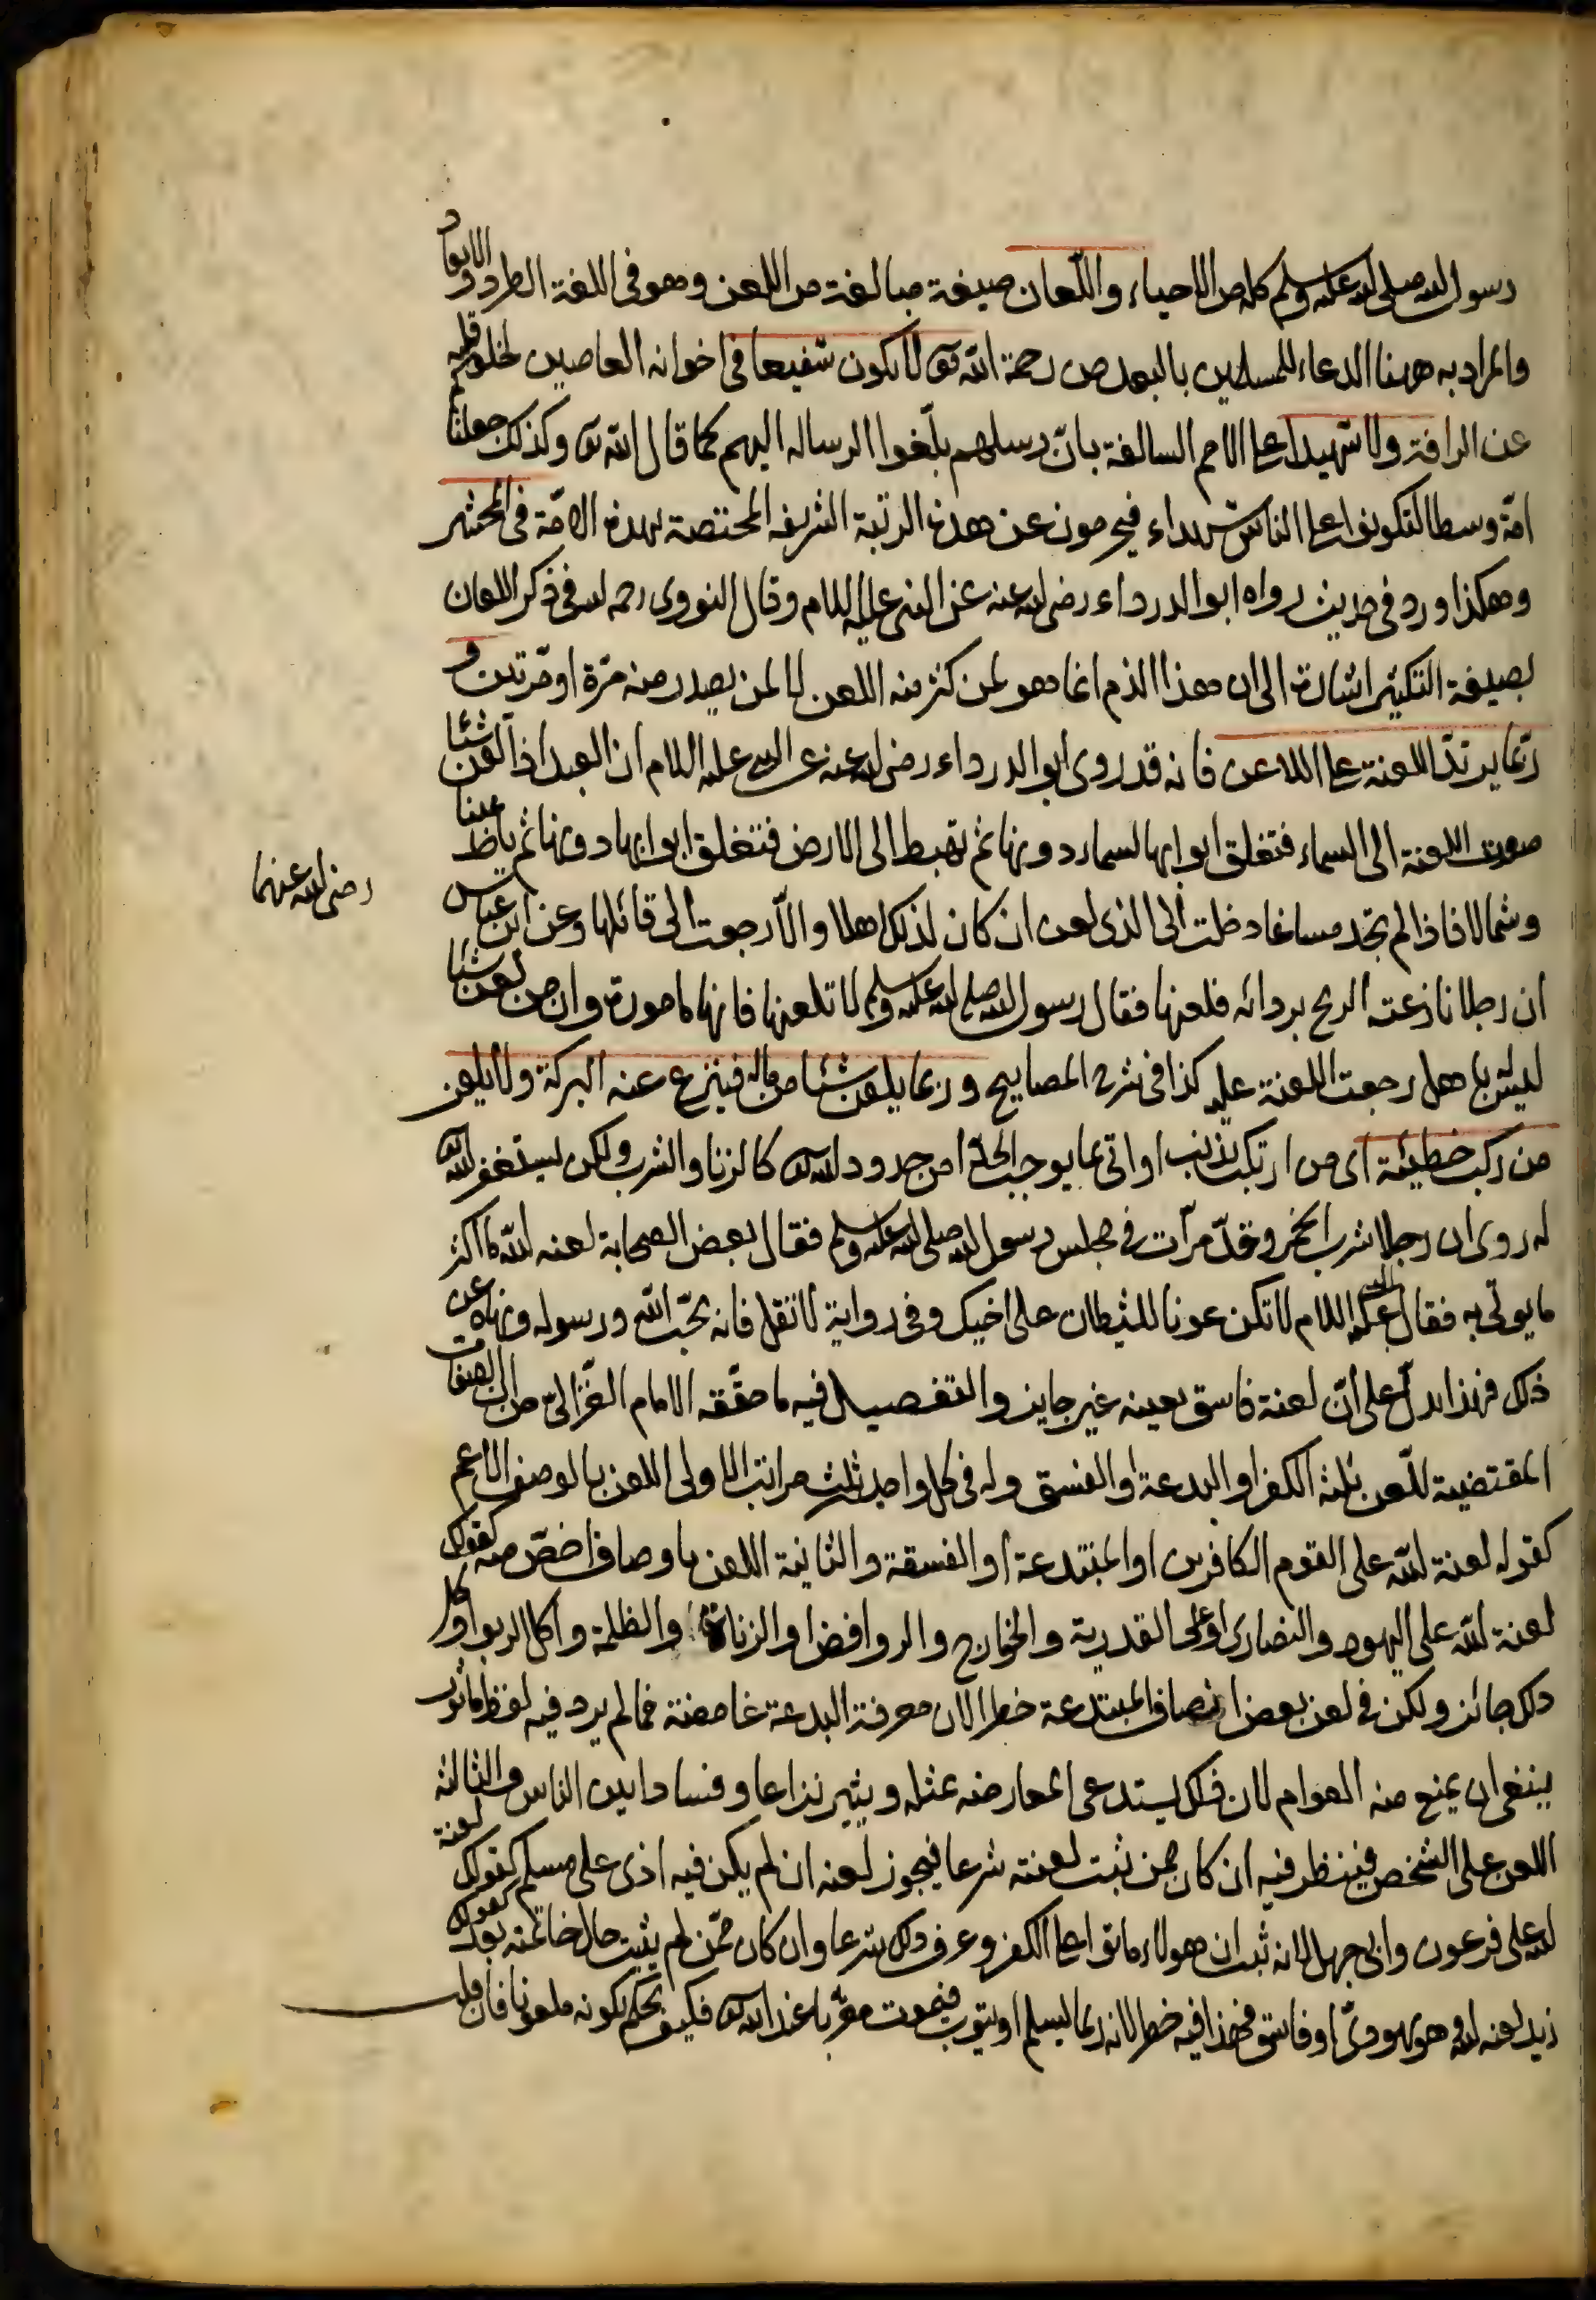 رسول الله صلى الله عليه وسلم كله من الاحياء واللعان صيغة مبالغة من اللعن وهو في اللغة الطرد والابعاد
والمراد به ههنا الدعاء للمسلمين بالبعد من رحمة الله تعالى لا يكون شفيعا في اخوانه العاصين لخلو قلبه
عن الرافة ولا شهيدا على الامم السالفة بان رسلهم بلغوا الرساله اليهم كما قال الله تعالى وكذلك جعلناكم
امة وسطا لتكونوا على الناس شهداء فيحرمون عن هذه الرتبة الشريفة المختصة بهذه الامة في المحشر
وهكذا ورد في حديث رواه ابو الدرداء رضى الله عنه عن النبي عليه السلام وقال النووى رحمه الله في ذكر اللعان
بصيغة التكثير اشارة الى ان هذا الذم انما هو لمن كثر منه اللعن لا لمن يصدر منه مرة او مرتين و
ربما يرتد اللعنة على اللاعن فانه قد روى ابو الدرداء رضى الله عنه عن النبي عليه السلام ان العبد اذا لعن شيئا
صعدت اللعنة الى السماء فتغلق ابوابها لسماء دونها ثم تهبط الى الارض فتغلق ابوابها دونها ثم ياخذ يمينا
وشمالا فاذا لم تجد مساغا دخلت الى الذى لعن ان كان لذلك اهلا والا رجعت الى قائلها وعن ابن عباس
رضى الله عنهما
ان رجلا نازعته الريح بردائه فلعنها فقال رسول الله صلى الله عليه وسلم لا تلعنها فانها مامورة وان من لعن شيئا
ليس باهل رجعت اللعنة عليه كذا في شرح المصابيح وربما يلعن شيئا من ماله فينزع عنه البركة ولا يلعن
من ركب خطيئة اى من ارتكب بذنب او اتى بما يوجب الحد من حدود الله تعالى كالزنا والشرب ولكن ليستغفر الله
له روى ان رجلا شرب الخمر وحد مرات في مجلس رسول الله صلى الله عليه وسلم فقال بعض الصحابة لعنه الله ما اكثر
ما يوتى به فقال النبي عليه السلام لا تكن عونا للشيطان على اخيك وفي رواية لا تقل فانه يحب الله ورسوله ونهاه عن
ذلك فهذا يدل على ان لعنة فاسق بعينه غير جايز والتفصيل فيه ما حققه الامام الغزالى من ان الصفات
المقتضية للعن ثلثة الكفر او البدعة او الفسق وله في كل واحد ثلث مراتب الاولى اللعن بالوصف الاعم
كقوله لعنة الله على القوم الكافرين او المبتدعة او الفسقة والثانية اللعن باوصاف اخص منه كقولك
لعنة الله على اليهود والنصارى او على القدرية والخوارج والروافض او الزناة والظلمة واكل الربوا وكل
ذلك جائز ولكن في لعن بعض اصناف المبتدعة خطر لان معرفة البدعة غامضة فما لم يرد فيه لفظ ماثور
ينبغي ان يمنع منه العوام لان ذلك يستدعى المعارضه بمثله ويثير نزاعا وفسادا بين الناس والثالثة
اللعن على الشخص فينظر فيه ان كان ممن ثبت لعنته شرعا فيجوز لعنه ان لم يكن فيه اذى على مسلم كقولك لعنة
الله على فرعون وابى جهل لانه ثبت ان هولاء ماتوا على الكفر وعرف ذلك شرعا وان كان ممن لم يثبت حال خاتمته بعد كقولك
زيد لعنه الله وهو يهودى او فاسق فهذا فيه خطر لانه ربما يسلم او يتوب فيموت مقربا عند الله تعالى فكيف يحكم بكونه ملعونا فان قلت